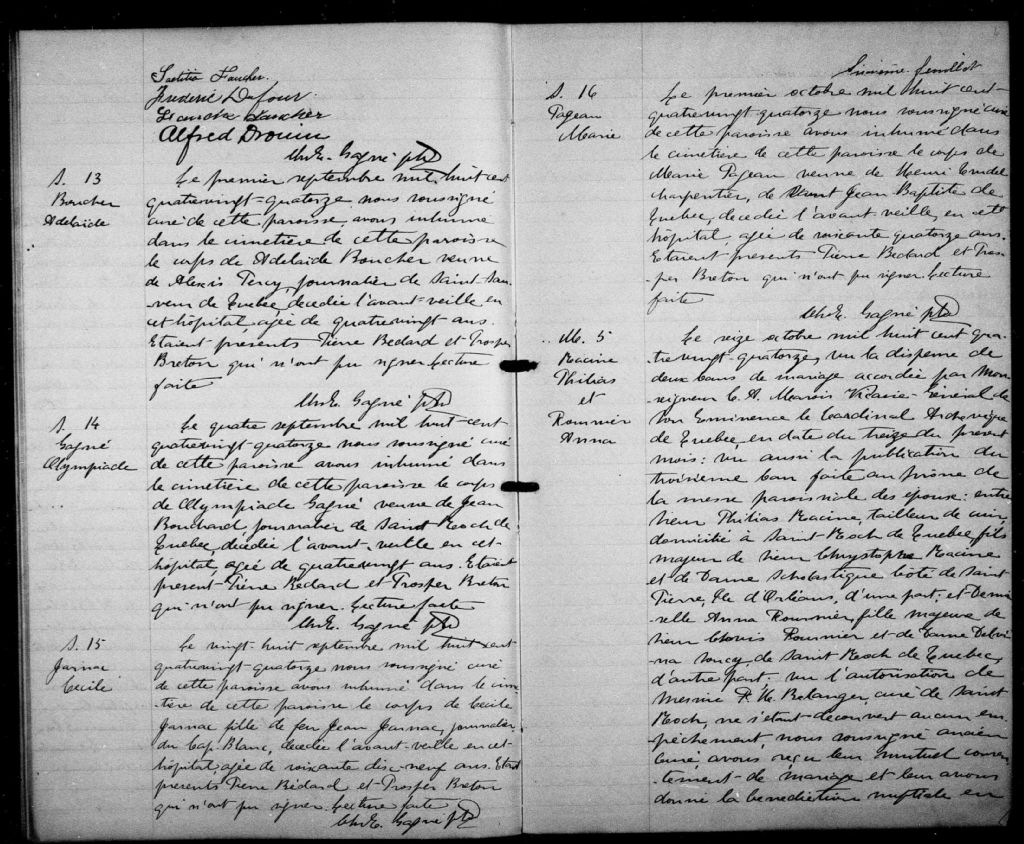 Laetitia Faucher.
Frederic Dufour
Faucher
Alfred Drouin
Chs E. Gagné ptre
S. 13
Boucher
Adelaïde
Le premier septembre mil huit cent
quatrevingt-quatorze nous soussigné
curé de cette paroisse, avons inhumé
dans le cimetiere de cette paroisse
le corps de Adelaïde Boucher veuve
de Alexis Tercy, journalier de Saint-Sau-
veur de Quebec, decedée l'avant-veille en
cet hôpital, agée de quatrevingt ans.
Etaient presents Pierre Bedard et Prosper
Breton qui n'ont pu signer. Lecture
faite
Chs E. Gagné ptre
S. 14
Gagné
Olympiade
Le quatre septembre mil huit-cent
quatrevingt-quatorze nous soussigné curé
de cette paroisse avons inhumé dans
le cimetiere de cette paroisse le corps
de Olympiade Gagné veuve de Jean
Bouchard journalier de Saint Roch de
Quebec, decedée l'avant-veille en cet-
hôpital, agée de quatrevingt ans. Etaient
present Pierre Bedard et Prosper Breton
qui n'ont pu signer. Lecture faite
Chs E. Gagné ptre
S. 15
Jarnac
Cecile
Le vingt-huit septembre mil huit cent
quatrevingt quatorze nous soussigné curé
de cette paroisse avons inhumé dans le cime-
tiere de cette paroisse le corps de Cecile
Jarnac fille de feu Jean Jarnac, journalier
du Cap-Blanc, decedée l'avant-veille en cet-
hôpital, agée de soixante dix-neuf ans. Etaient
presents Pierre Bédard et Prosper Breton
qui n'ont pu signer. Lecture faite
Chs E. Gagné ptre
S. 16
Pageau
Marie
Le premier octobre mil huit cent-
quatrevingt quatorze nous soussigné curé
de cette paroisse avons inhumé dans
le cimetiere de cette paroisse le corps de
Marie Pageau veuve de Henri Trudel
charpentier, de Saint Jean Baptiste de
Quebec, decedée l'avant veille, en cet
hôpital, agée de soixante quatorze ans.
Etaient presents Pierre Bedard et Pros-
per Breton qui n'ont pu signer Lecture
faite
Chs E. Gagné ptre
M. 5
Racine
Philias
et
Rommier
Anna
Le seize octobre mil huit cent qua-
trevingt-quatorze, vu la dispense de
deux bans de mariage accordée par Mon-
seigneur C. A. Marois Vicaire-General de
Son Eminence le Cardinal Archevêque
de Quebec, en date du treize du present
mois: vu aussi la publication du
troisième ban faite au prône de
la messe paroissiale des epoux: entre
sieur Philias Racine, tailleur de cuir,
domicilié à Saint Roch de Quebec, fils
majeur de sieur Chrystophe Racine
et de Dame Scholastique Côté de Saint
Pierre, Ile d'Orléans, d'une part; et Demoi-
selle Anna Rommier, fille majeure de
sieur Clovis Rommier et de Dame Delvi-
na Soucy, de Saint Roch de Quebec,
d'autre part. vu l'autorisation de
Messire F. H. Belanger, curé de Saint
Roch, ne s'etant decouvert aucun em-
pêchement, nous soussigné ancien
curé, avons reçu leur mutuel consen-
tement de mariage et leur avons
donné la benediction nuptiale en